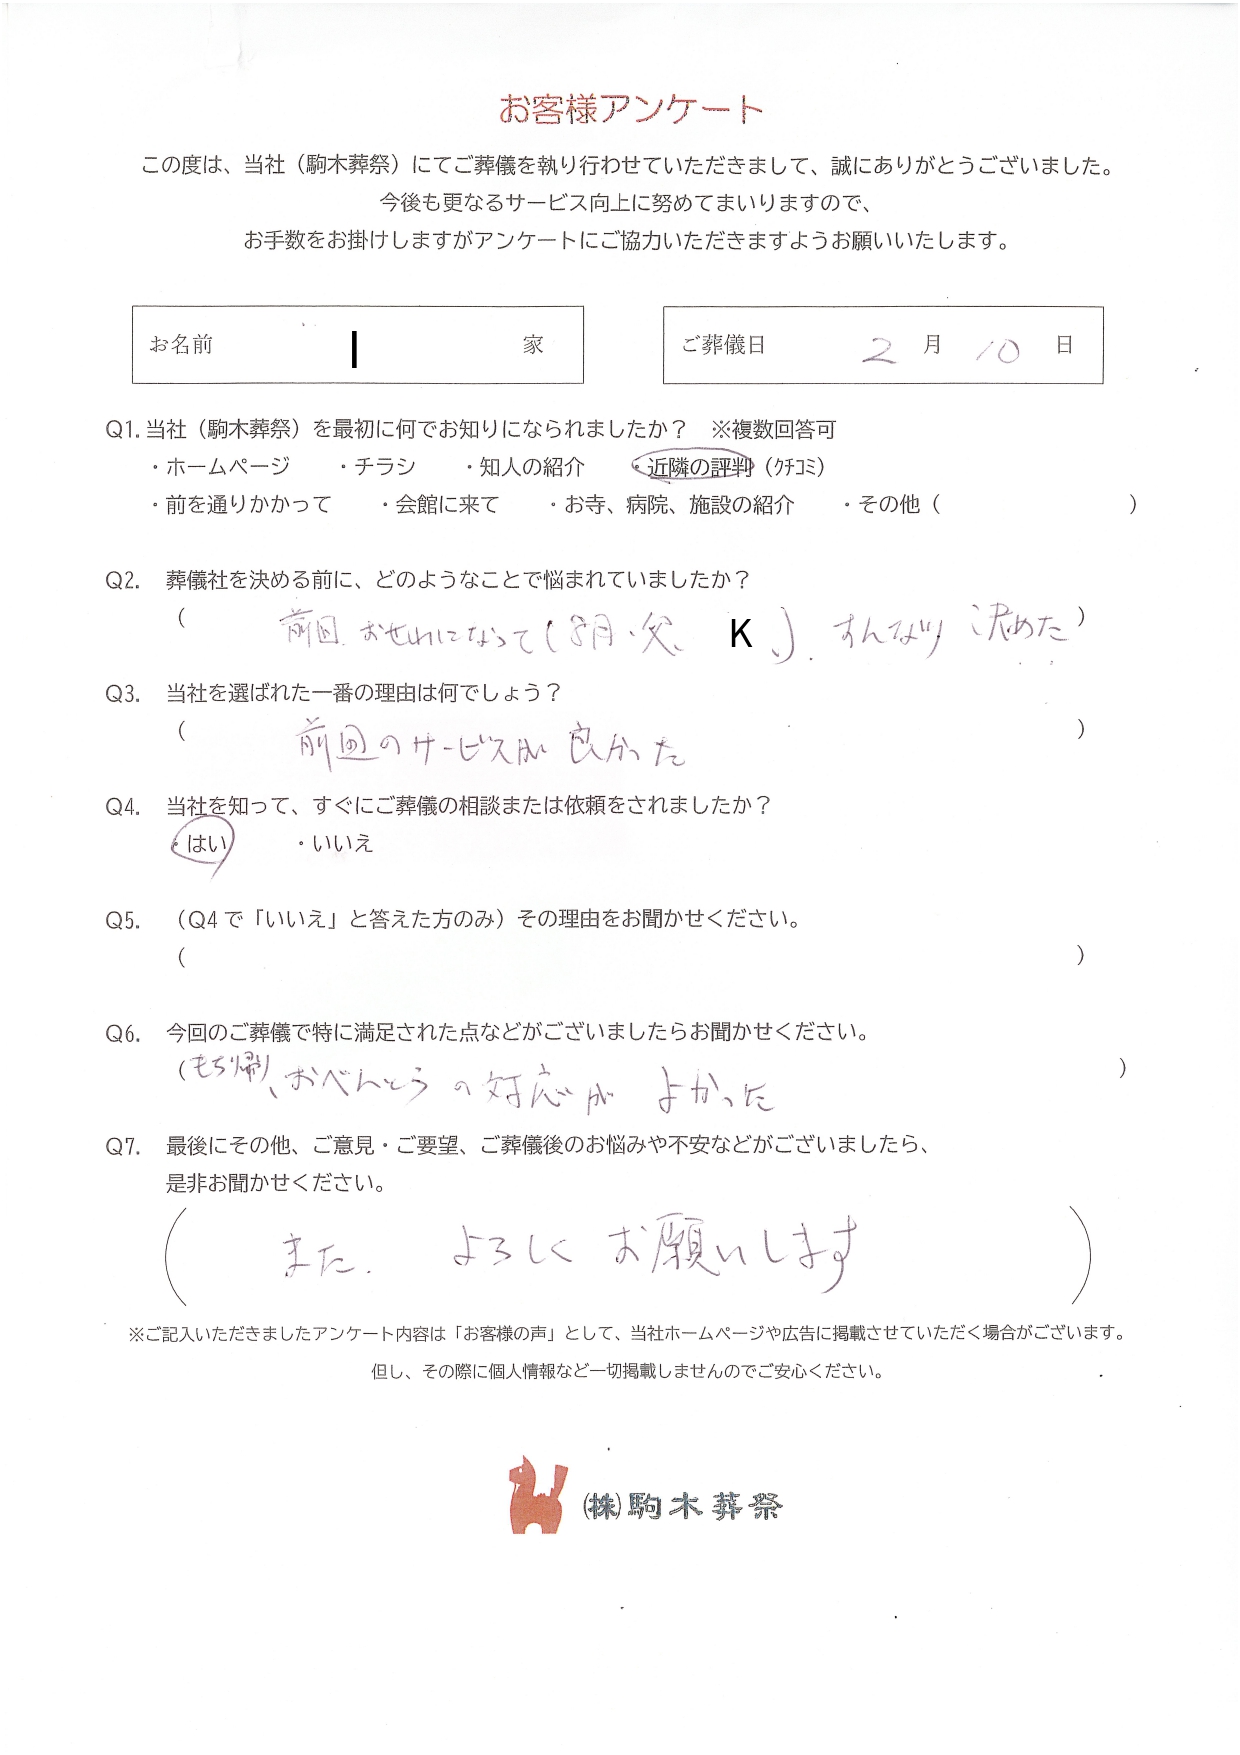 お客様アンケート
この度は、当社（駒木葬祭）にてご葬儀を執り行わせていただきまして、誠にありがとうございました。
今後も更なるサービス向上に努めてまいりますので、
お手数をお掛けしますがアンケートにご協力いただきますようお願いいたします。
お名前 I 家
ご葬儀日 2 月 10 日
Q1.当社（駒木葬祭）を最初に何でお知りになられましたか？ ※複数回答可
・ホームページ ・チラシ ・知人の紹介 ・近隣の評判（ｸﾁｺﾐ）
・前を通りかかって ・会館に来て ・お寺、病院、施設の紹介 ・その他（ ）
Q2. 葬儀社を決める前に、どのようなことで悩まれていましたか？
（ 前回 おせわになって(8月・父、 K 、). すんなり 決めた ）
Q3. 当社を選ばれた一番の理由は何でしょう？
（ 前回のサービスが 良かった ）
Q4. 当社を知って、すぐにご葬儀の相談または依頼をされましたか？
・はい ・いいえ
Q5. （Q4で「いいえ」と答えた方のみ）その理由をお聞かせください。
（ ）
Q6. 今回のご葬儀で特に満足された点などがございましたらお聞かせください。
（もち帰り、おべんとうの対応が よかった ）
Q7. 最後にその他、ご意見・ご要望、ご葬儀後のお悩みや不安などがございましたら、
是非お聞かせください。
（ また. よろしく お願いします ）
※ご記入いただきましたアンケート内容は「お客様の声」として、当社ホームページや広告に掲載させていただく場合がございます。
但し、その際に個人情報など一切掲載しませんのでご安心ください。
(株)駒木葬祭